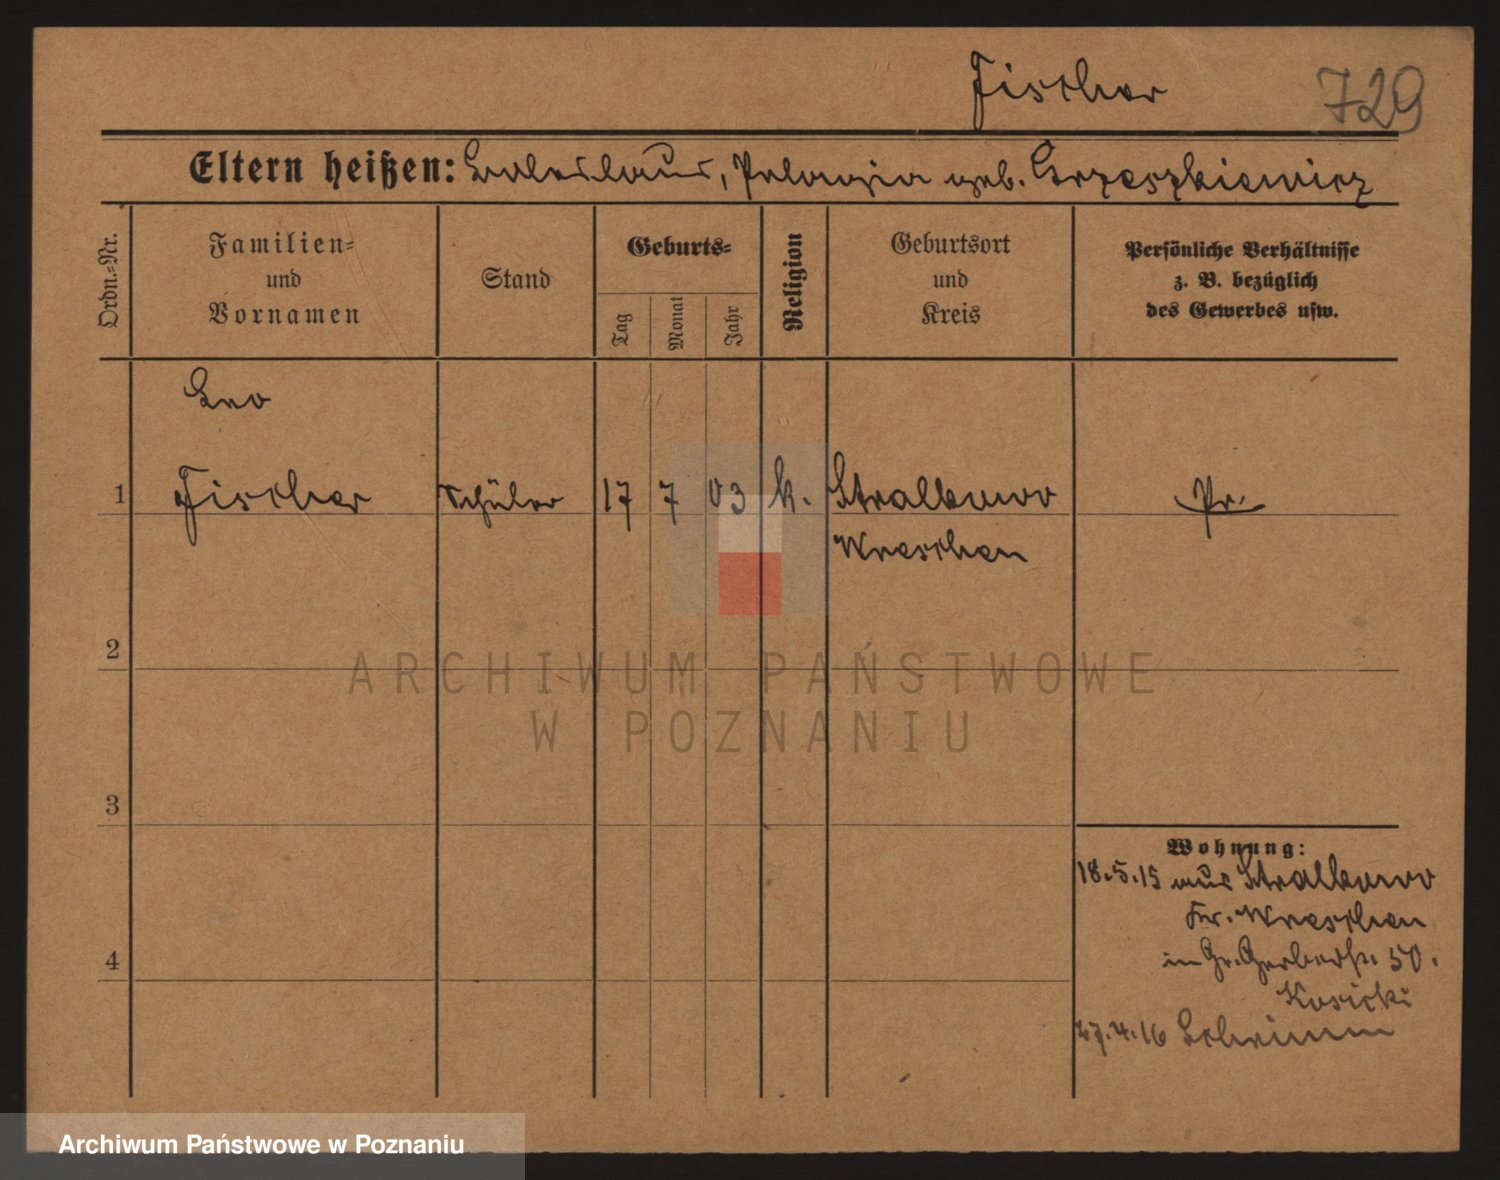 Fischer 729
Eltern heißen: Boleslaus, Pelagia geb. Grzeszkiewicz
Ordn.-Nr.
Familien-
und
Vornamen
Stand
Geburts-
Tag
Monat
Jahr
Religion
Geburtsort
und
Kreis
Persönliche Verhältnisse
z. B. bezüglich
des Gewerbes usw.
Leo
1 Fischer Schüler 17 7 03 k. Stralkowo Pr.
Wreschen
2
3
4
Wohnung:
18.5.15 aus Stralkowo
Kr. Wreschen
in Gr. Gerberstr. 50.
Kosicki
27.4.16 Schrimm
ARCHIWUM PAŃSTWOWE
W POZNANIU
Archiwum Państwowe w Poznaniu